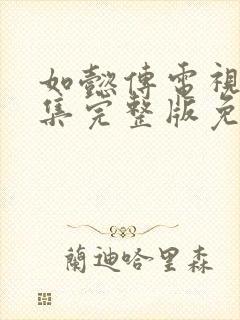 如懿傳電視
集完整版免
蘭迪哈里森